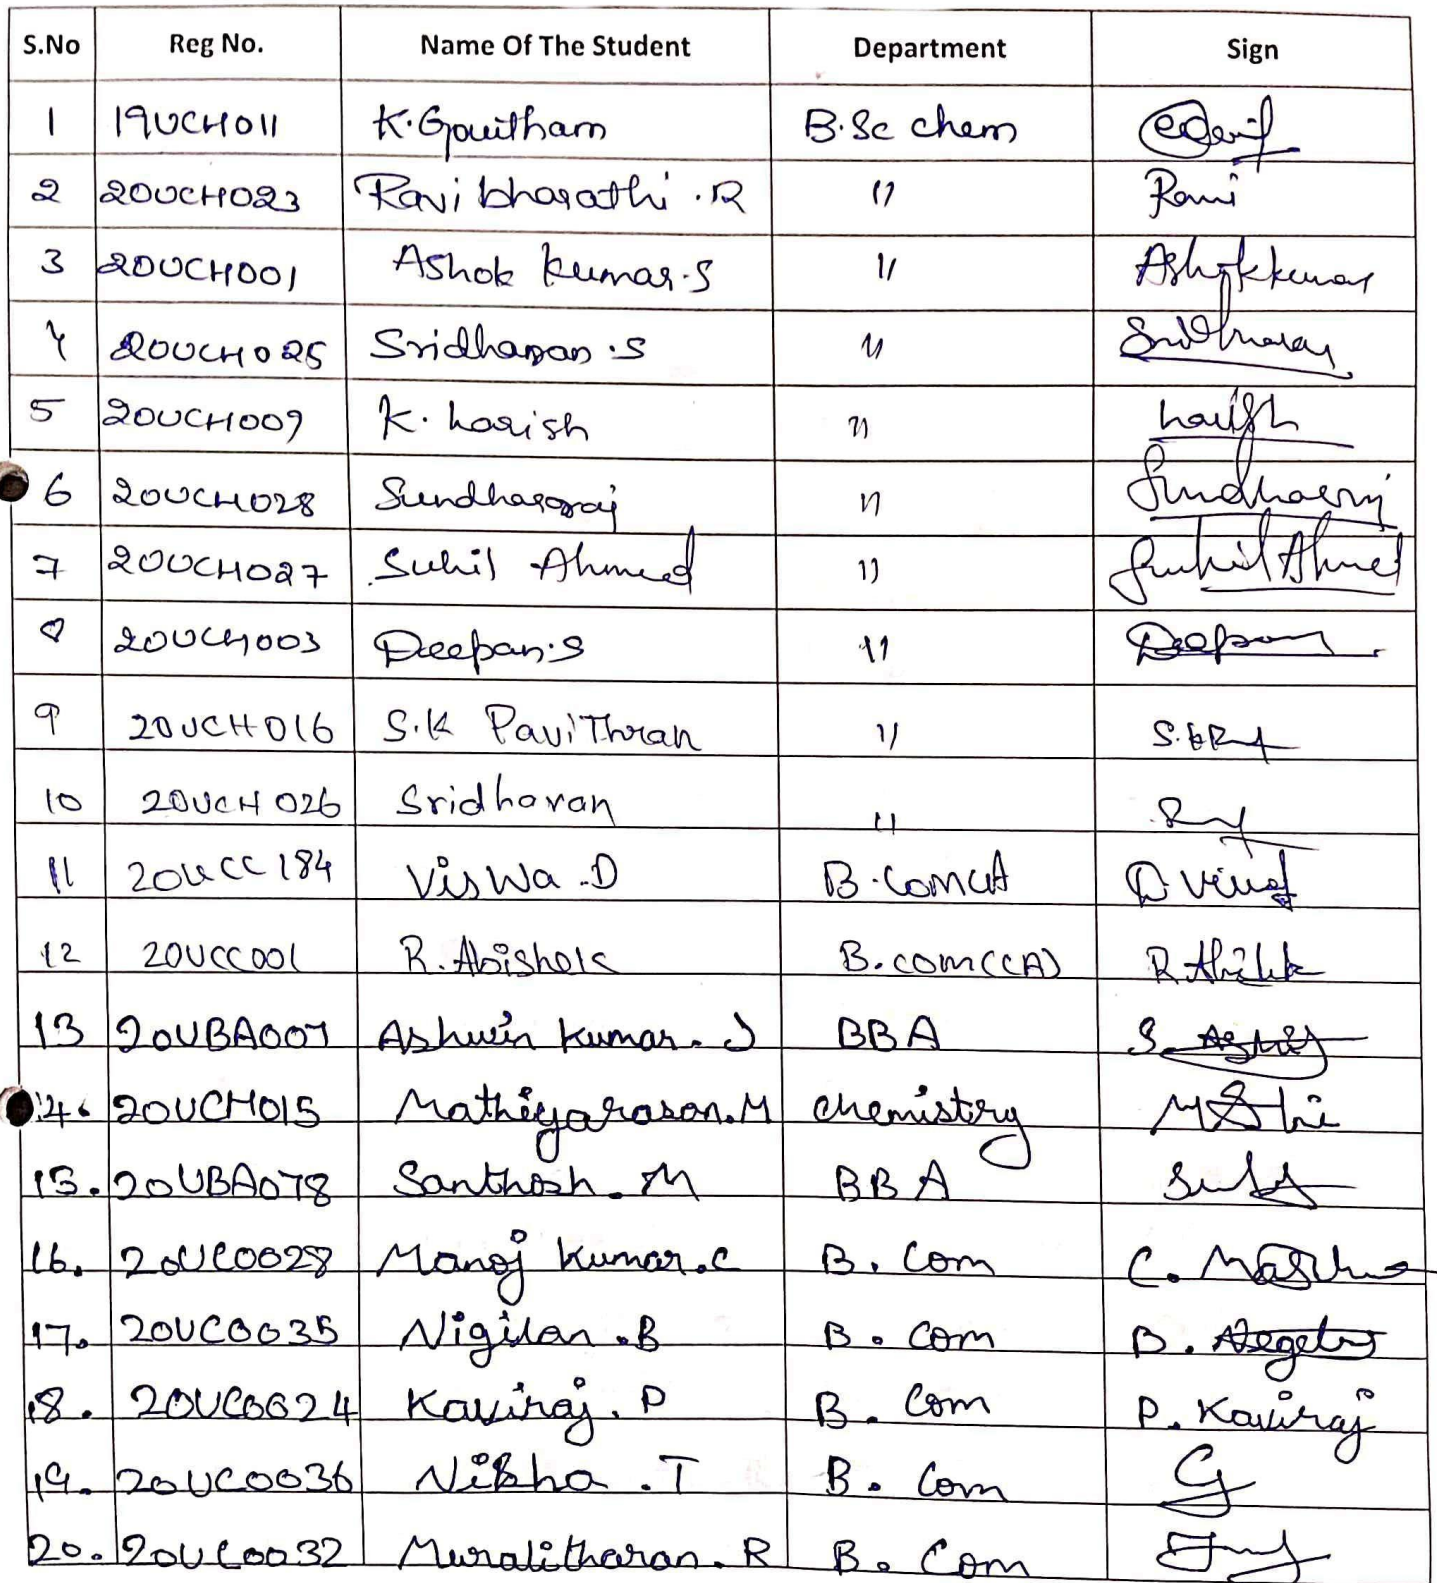 S.No Reg No. Name Of The Student Department Sign
1 19UCH011 K.Gowtham B.Sc chem
2 20UCH023 Ravibharathi .R " Ravi
3 20UCH001 Ashok kumar.S " Ashokkumar
4 20UCH025 Sridharan .S " Sridharan
5 20UCH009 K. harish " harish
6 20UCH028 Sundharraj " Sundharraj
7 20UCH027 Suhil Ahmed " Suhil Ahmed
8 20UCH003 Deepan.S " Deepan
9 20UCH016 S.K PaviThran "
10 20UCH026 Sridharan "
11 20UCC184 Viswa .D B.com CA
12 20UCC001 R.Abishek B.com(CA) R.Abishek
13 20UBA007 Ashwin kumar. J BBA
14. 20UCH015 Mathiyarasan.M chemistory
15. 20UBA078 Santhosh. M BBA
16. 20UCO028 Manoj kumar.C B. Com
17. 20UCO035 Nigilan .B B. Com
18. 20UCO024 Kaviraj. P B. Com P. Kaviraj
19. 20UCO036 .T B. Com
20. 20UCO032 Muralitharan. R B. Com